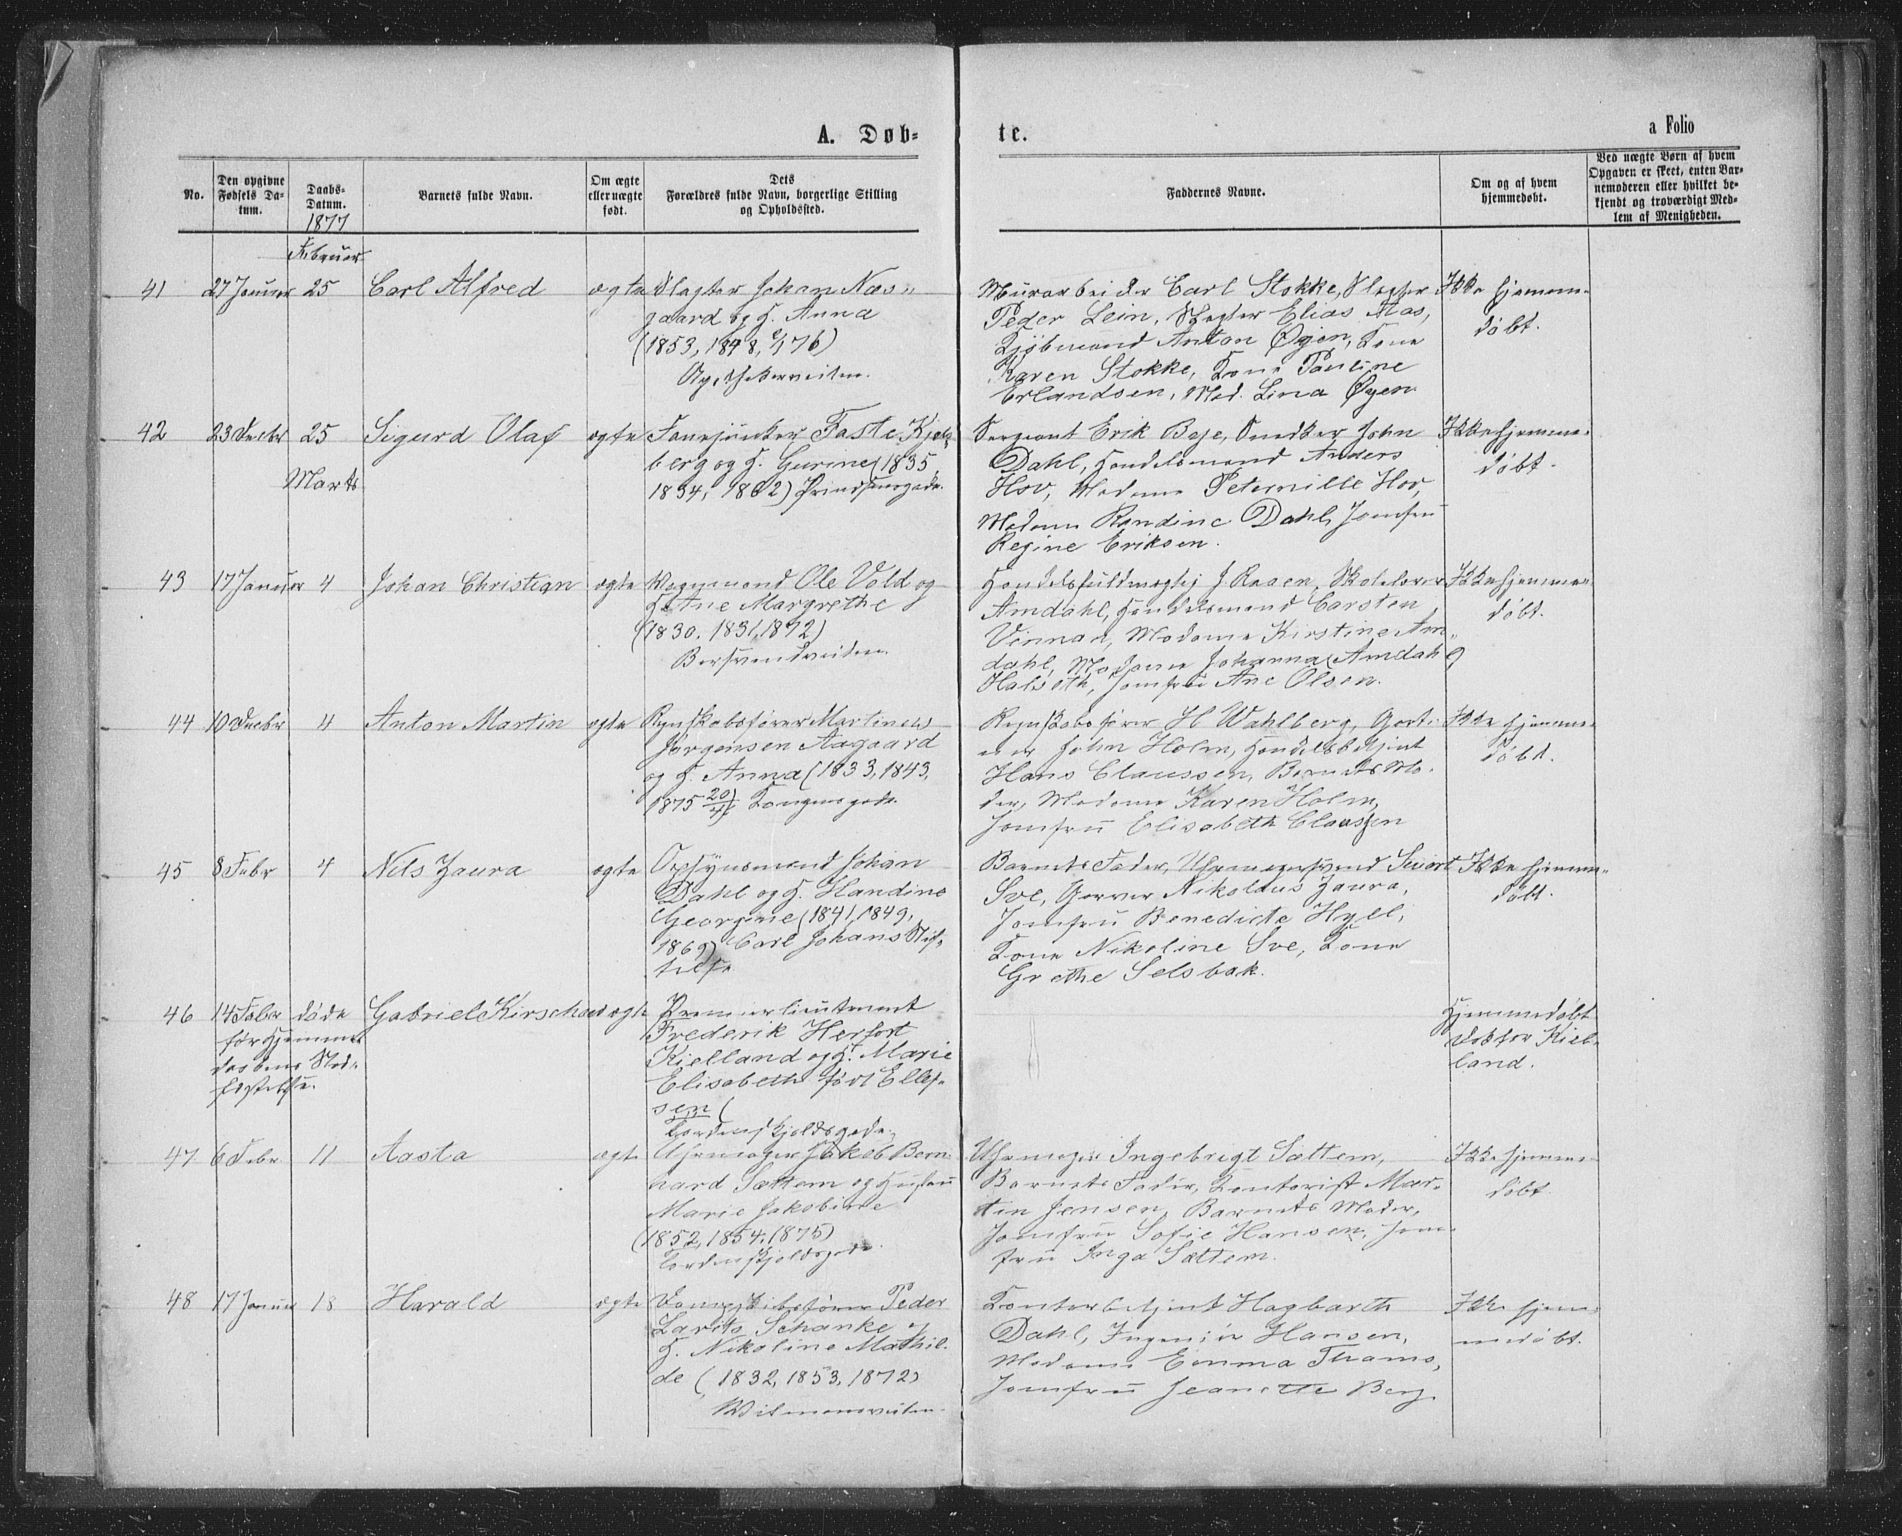 A. Døb-
te.
a Folio
No.
Den opgivne
Fødsels Da-
tum.
Daabs-
Datum.
1877
Barnets fulde Navn.
Om ægte
eller uægte
født.
Dets
Forældres fulde Navn, borgerlige Stilling
og Opholdssted.
Faddernes Navne.
Om og af hvem
hjemmedøbt.
Ved uægte Børn af hvem
Opgaven er skeet, enten Bar-
nemoderen eller hvilket be-
kjendt og troværdigt Med-
lem af Menigheden.
Februar
41 27 Januar 25 Carl Alfred ægte Slagter Johan Næs-
gaard og H. Anna
(1853, 1848, 76)
Apothekerveiten.
Murarbeider Carl Stokke, Slagter
Peder Lein, Slagter Elias Aas,
Kjøbmand Anton Øyen, Kone
Karen Stokke, Kone Pauline
Erlandsen, Mad. Lina Øyen
Ikke hjemme-
døbt.
42 23 Decbr 25 Sigurd Olaf ægte Fanejunker Faste Kjels
berg og H. Gurine (1835,
1834, 1862) Prindsensgade.
Marts
Sergeant Erik Beje, Snedker John
Dahl, Handelsmand Anders
Hov, Madame Peternille Hov,
Madame Randine Dahl, Jomfru
Regine Eriksen.
Ikke hjemme-
døbt.
43 17 Januar 4 Johan Christian ægte Vognmand Ole Vold og
H. Ane Margrethe
(1830, 1831, 1872)
Bersvendveiten.
Handelsfuldmægtig J. Raaen, Skolelærer
Amdahl, Handelsmand Carsten
Vinnan, Madame Kirstine Am-
dahl, Madame Johanna Amdahl,
Halseth, Jomfru Ane Olsen.
Ikke hjemme-
døbt.
44 10 Decbr 4 Anton Martin ægte Regnskabsfører Martinus
Jørgensen Aagaard
og H. Anna (1833, 1843,
1875 20/4) Kongensgade.
Regnskabsfører H Wahlberg, Gart-
ner John Holm, Handelsbetjent
Hans Claussen, Barnets Mo-
der, Madame Karen Holm,
Jomfru Elisabeth Claussen
Ikke hjemme-
døbt.
45 8 Febr 4 Nils Zaura ægte Opsynsmand Johan
Dahl og H. Handine
Georgine (1841, 1849,
1869) Carl Johans Stif-
telse
Barnets Fader, Uhrmagersvend Sivert
Sve, Garver Nikolaus Zaura,
Jomfru Benedicte Hyel,
Kone Nikoline Sve, Kone
Grethe Selsbak.
Ikke hjemme-
døbt.
46 14 Febr døde Gabriel Kirschow ægte Premierlieutenant
før Hjemme-
daabens Stad-
fæstelse.
Frederik Herfort
Kielland og H. Marie
Elisabeth født Ellef-
sen (
Tordenskjoldsgade.
Hjemmedøbt
Doktor Kiel-
land.
47 6 Febr 11 Aasta ægte Uhrmager Jakob Bern
hard Sættem og Hustru
Marie Jakobine
(1852, 1854, 1875)
Tordenskjoldsgade.
Uhrmager Ingebrigt Sættem,
Barnets Fader, Kontorist Mar-
tin Jensen, Barnets Moder,
Jomfru Sofie Hansen, Jom-
fru Inga Sættem.
Ikke hjemme-
døbt
48 17 Januar 18 Harald ægte Dampskibsfører Peder
Lavits Schanke og
H. Nikoline Mathil-
de (1832, 1853, 1872)
Wilmannsveiten.
Kontorbetjent Hagbarth
Dahl, Ingeniør Hansen,
Madame Emma Thams,
Jomfru Jeanette Berg.
Ikke hjem-
medøbt.